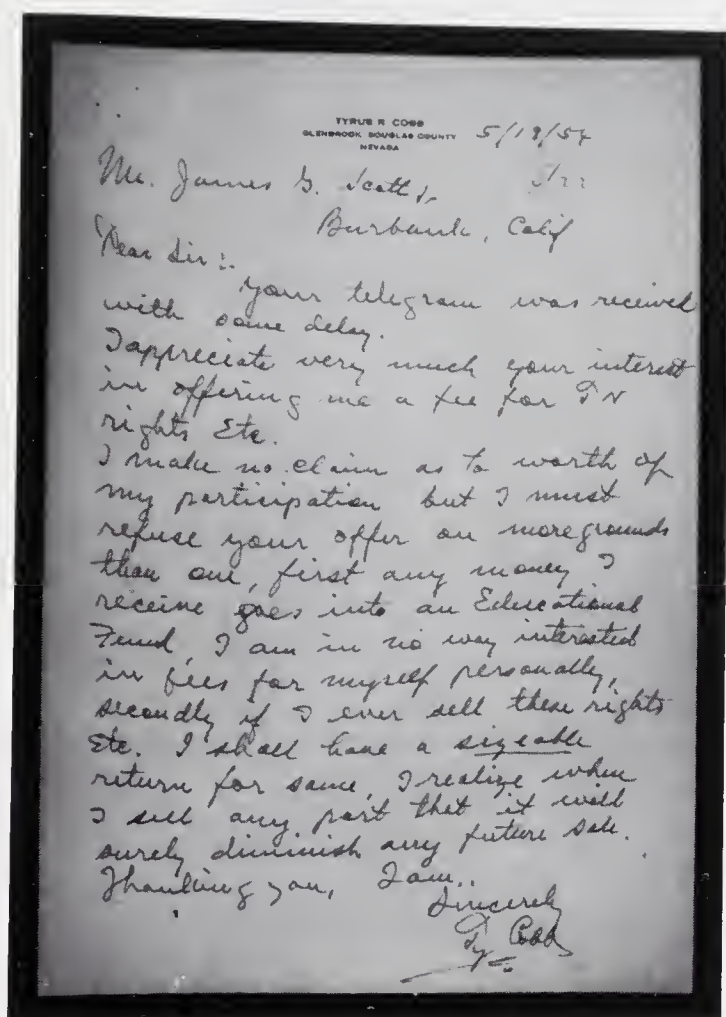 TYRUS R. COBB
GLENBROOK, DOUGLAS COUNTY
NEVADA
5/18/54
Mr. James G. Scott Jr.
Burbank, Calif
Dear Sir:.
your telegram was received
with some delay.
I appreciate very much your interest
in offering me a fee for TV
rights Etc.
I make no claim as to worth of
my participation but I must
refuse your offer on more grounds
than one, first any money I
receive goes into an Educational
Fund, I am in no way interested
in fees for myself personally,
secondly if I ever sell these rights
Etc. I shall have a sizeable
return for same, I realize when
I sell any part that it will
surely diminish any future sale.
Thanking you, I am..
Sincerely
Ty Cobb